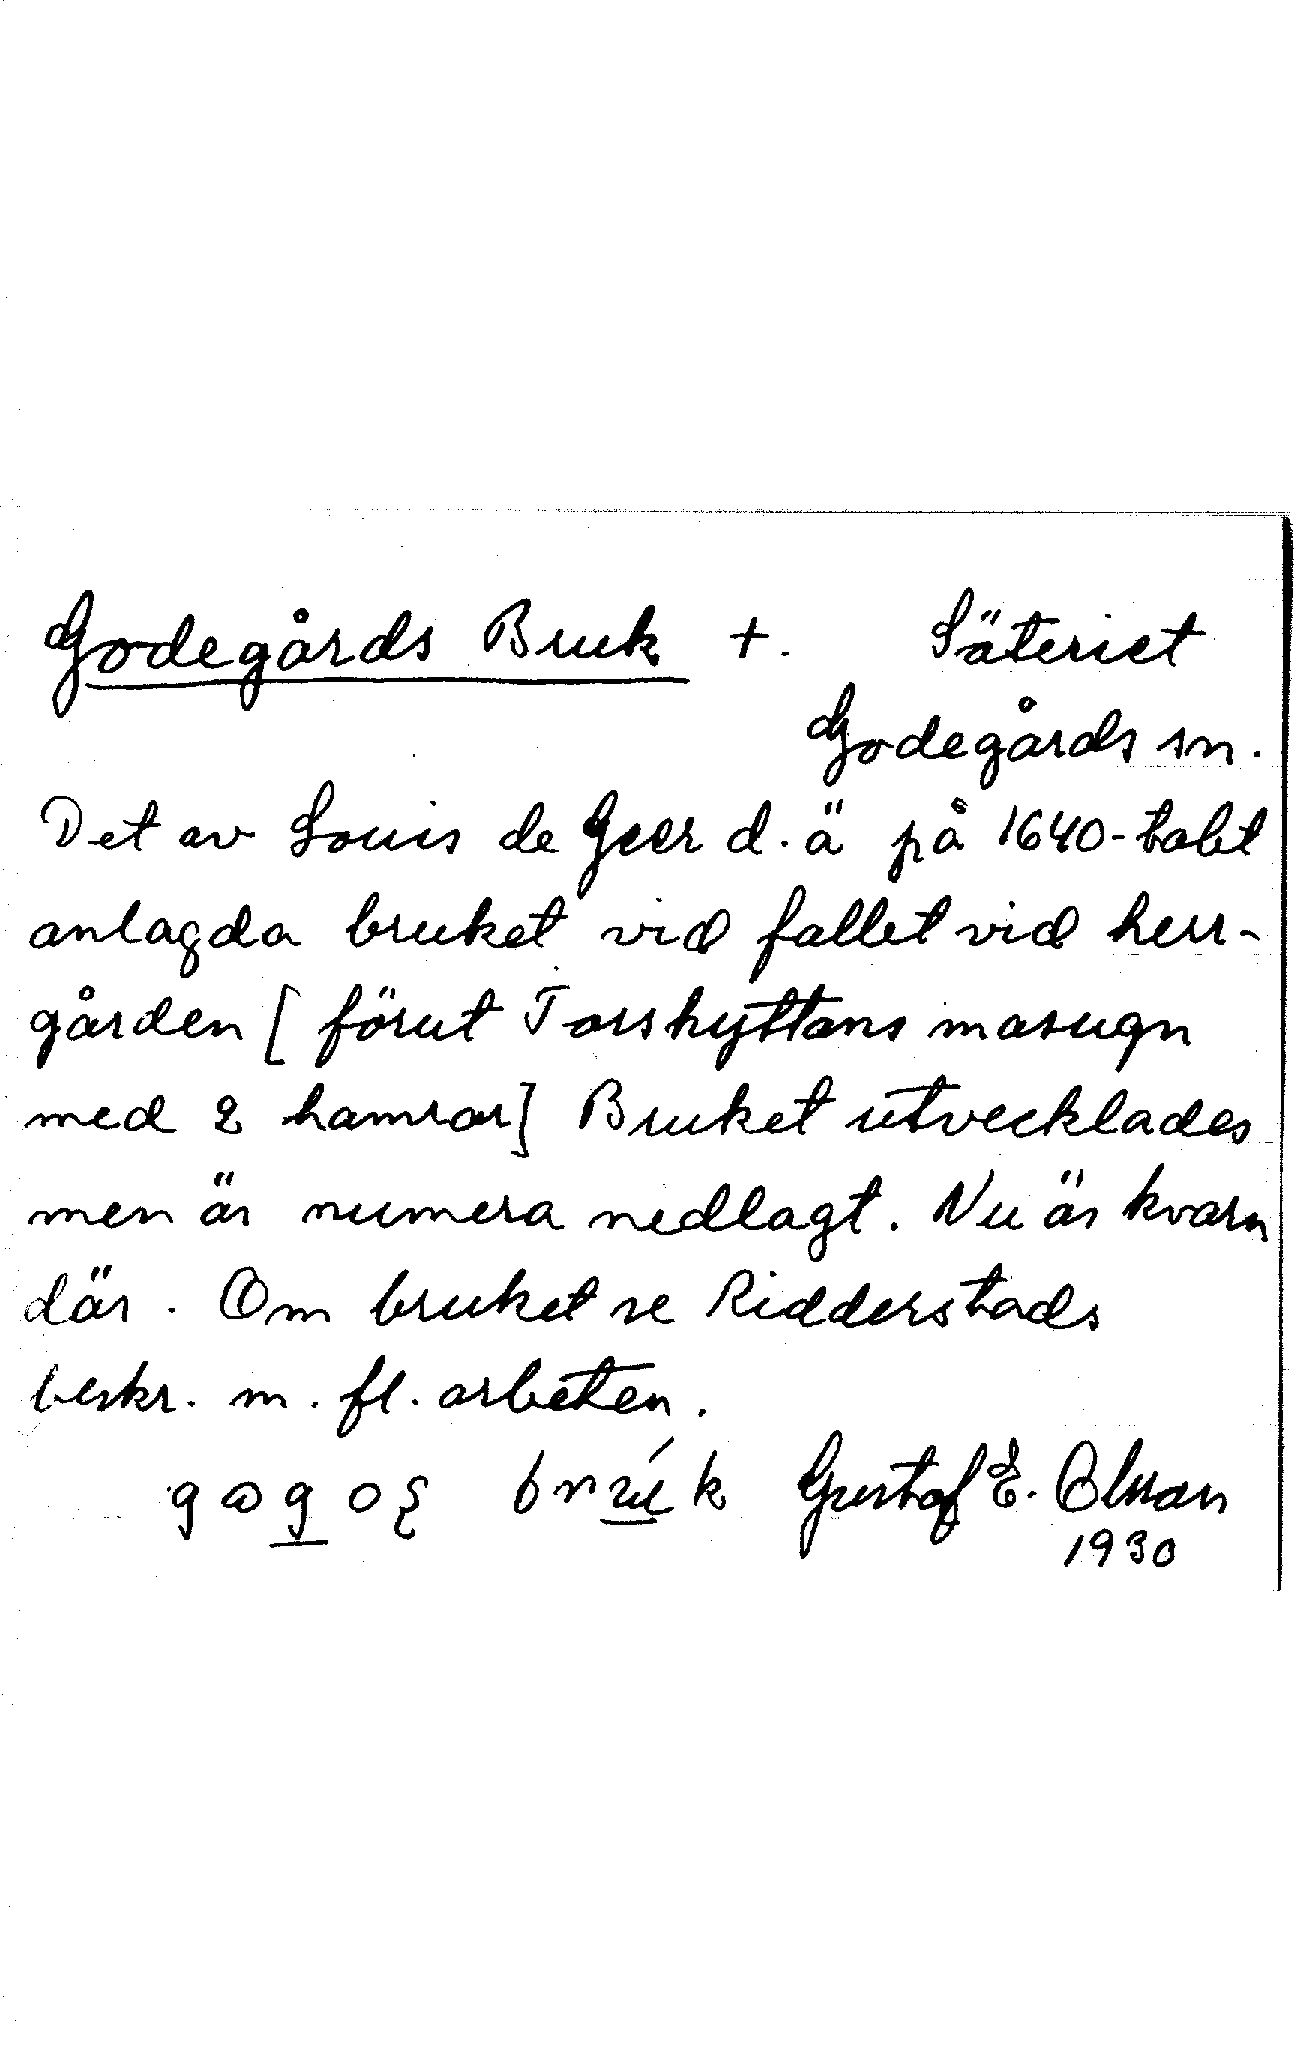 Godegårds Bruk +. Säteriet
Godegårds sn.
Det av Louis de Geer d.ä på 1640-talet
anlagda bruket vid fallet vid herr-
gården [förut Torshyttans masugn
med 2 hamrar] Bruket utvecklades
men är numera nedlagt. Nu är kvarn
där. Om bruket se Ridderstads
beskr. m. fl. arbeten.
Gustaf E. Olsson
1930